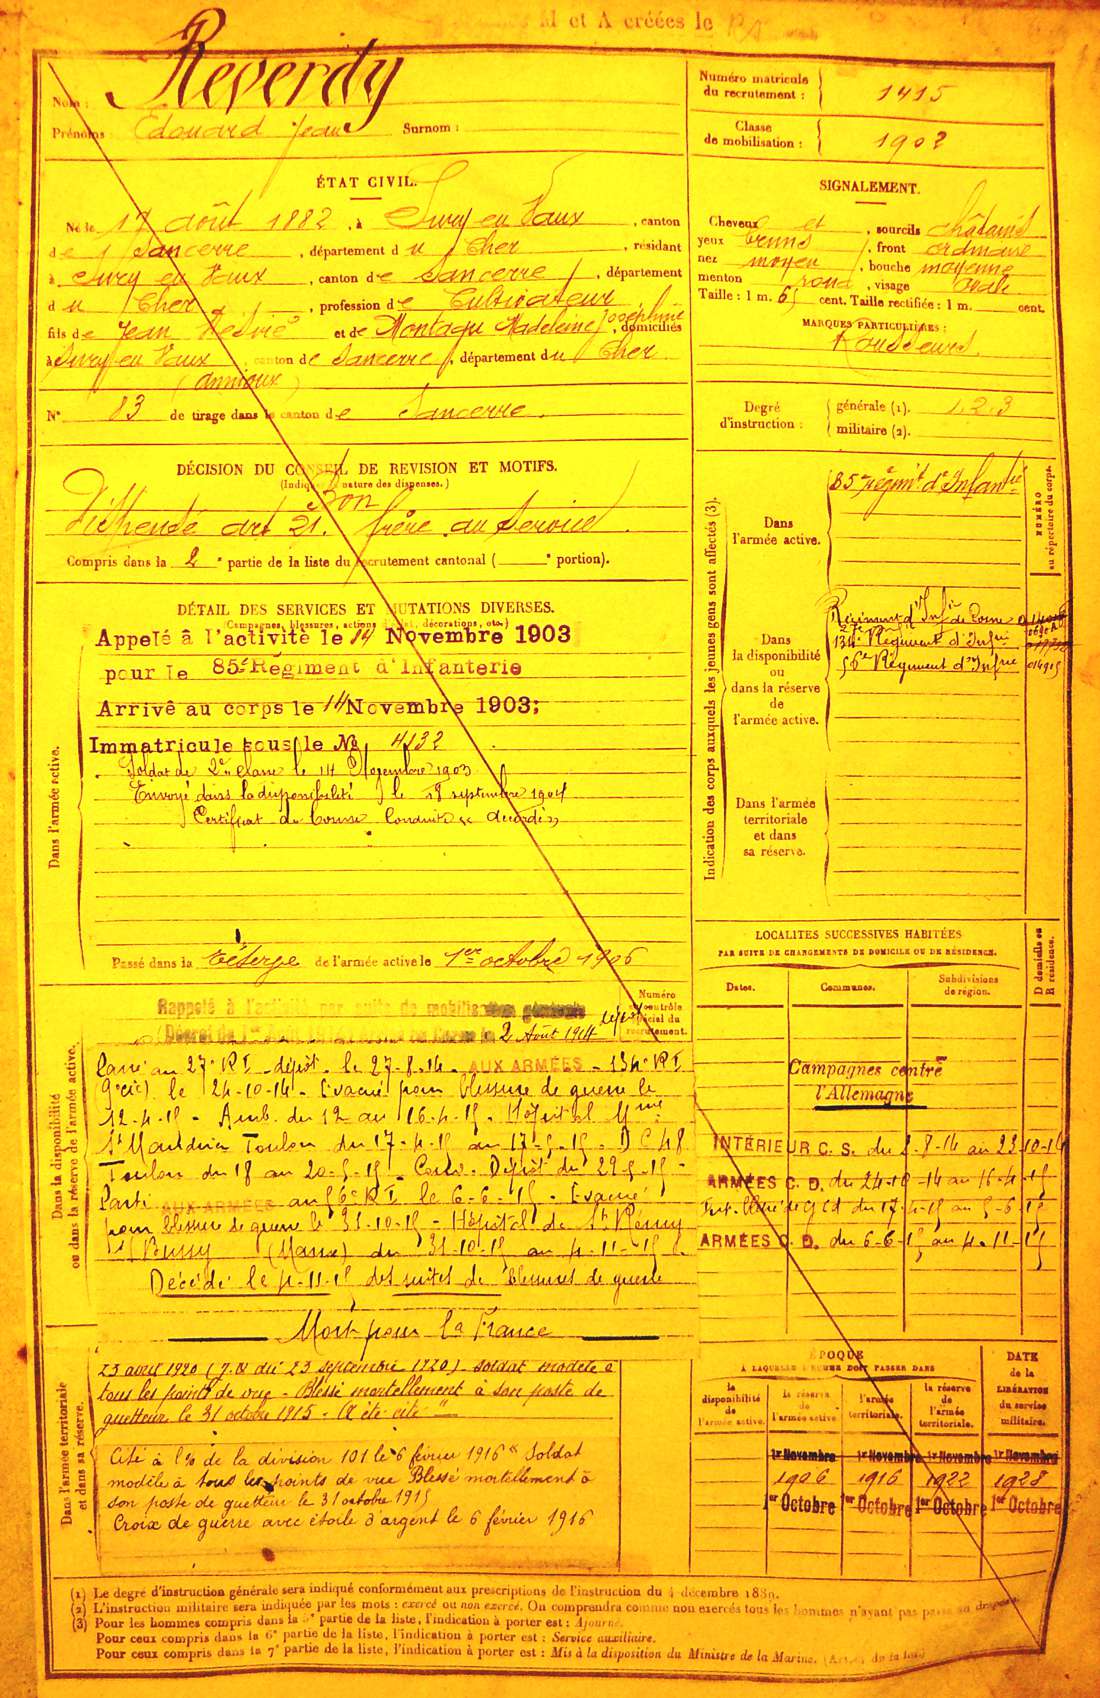 M et A créées le
Nom : Reverdy
Prénoms : Edouard Jean Surnom :
Numéro matricule du recrutement : 1415
Classe de mobilisation : 1902
ÉTAT CIVIL.
Né le 17 août 1882, à Sury en Vaux, canton
de Sancerre, département du Cher, résidant
à Sury en Vaux, canton de Sancerre, département
du Cher, profession de Cultivateur
fils de Jean Désiré et de Montagu Madeleine Joséphine, domiciliés
à Sury en Vaux canton de Sancerre, département du Cher
(annioux)
N° 83 de tirage dans le canton de Sancerre.
SIGNALEMENT.
Cheveux et, sourcils châtains
yeux bruns, front ordinaire
nez moyen, bouche moyenne
menton rond, visage ovale
Taille : 1 m. 65 cent. Taille rectifiée : 1 m. cent.
MARQUES PARTICULIÈRES :
Rousseurs.
Degré d'instruction : générale (1). 1.2.3
militaire (2).
DÉCISION DU CONSEIL DE REVISION ET MOTIFS.
(Indiquer la nature des dispenses.)
Bon
Dispensé art 21. frère au service.
Compris dans la 2e partie de la liste du recrutement cantonal ( e portion).
DÉTAIL DES SERVICES ET MUTATIONS DIVERSES.
(Campagnes, blessures, actions d'éclat, décorations, etc.)
Dans l'armée active.
Appelé à l'activité le 14 Novembre 1903
pour le 85e Régiment d'Infanterie
Arrivé au corps le 14 Novembre 1903;
Immatriculé sous le No 4132
Soldat de 2e classe le 14 Novembre 1903
Envoyé dans la disponibilité le 18 septembre 1904
Certificat de bonne conduite "accordé"
Passé dans la réserve de l'armée active le 1er octobre 1906
Indication des corps auxquels les jeunes gens sont affectés (3).
NUMÉRO au répertoire du corps.
Dans l'armée active.
85e régim't d'Infantie
Dans la disponibilité ou dans la réserve de l'armée active.
Régiment d'Infie de Cosne
134e Régiment d'Infie
56e Régiment d'Infie 014915
Dans l'armée territoriale et dans sa réserve.
LOCALITÉS SUCCESSIVES HABITÉES
PAR SUITE DE CHANGEMENTS DE DOMICILE OU DE RÉSIDENCE.
Dates. Communes. Subdivisions de région. D domicile ou R résidence.
Dans la disponibilité ou dans la réserve de l'armée active.
Numéro au contrôle spécial du recrutement.
Rappelé à l'activité par suite de mobilisation générale
(Décret du 1er Août 1914) 2 Août 1914
Passé au 27e RI dépôt le 27-8-14. AUX ARMÉES - 134e RI
9e Cie) le 24-10-14 - Evacué pour blessure de guerre le
12-4-15 - Amb. du 12 au 16-4-15. Hôpital Mme
St Mandrier Toulon du 17-4-15 au 17-5-15. DC 48
Toulon du 18 au 20-5-15. Conv. Dépôt du 29-5-15 -
Parti AUX ARMÉES au 56e RI le 6-6-15. Evacué
pour blessure de guerre le 31-10-15 - Hôpital de St Rémy
s/ Bussy (Marne) du 31-10-15 au 4-11-15
Décédé le 4-11-15 des suites de blessures de guerre
Mort pour la France
Campagnes contre
l'Allemagne
INTÉRIEUR C. S. du 2-8-14 au 23-10-14
ARMÉES C. D. du 24-10-14 au 16-4-15
Int. Blessé de G CD du 17-4-15 au 5-6-15
ARMÉES C. D. du 6-6-15 au 4-11-15
Dans l'armée territoriale et dans sa réserve.
23 avril 1920 (J.O du 23 septembre 1920) soldat modèle à
tous les points de vue - Blessé mortellement à son poste de
guetteur le 31 octobre 1915. A été cité "
Cité à l'o/ de la division 101 le 6 février 1916 "Soldat
modèle à tous les points de vue Blessé mortellement à
son poste de guetteur le 31 octobre 1915
Croix de guerre avec étoile d'argent le 6 février 1916
ÉPOQUE
À LAQUELLE L'HOMME DOIT PASSER DANS
la disponibilité de l'armée active. la réserve de l'armée active. l'armée territoriale. la réserve de l'armée territoriale. DATE de la LIBÉRATION du service militaire.
1er Novembre 1er Novembre 1er Novembre 1er Novembre
1906 1916 1922 1928
1er Octobre 1er Octobre 1er Octobre 1er Octobre
(1) Le degré d'instruction générale sera indiqué conformément aux prescriptions de l'instruction du 4 décembre 1889.
(2) L'instruction militaire sera indiquée par les mots : exercé ou non exercé. On comprendra comme non exercés tous les hommes n'ayant pas passé au drapeau.
(3) Pour les hommes compris dans la 5e partie de la liste, l'indication à porter est : Ajourné.
Pour ceux compris dans la 6e partie de la liste, l'indication à porter est : Service auxiliaire.
Pour ceux compris dans la 7e partie de la liste, l'indication à porter est : Mis à la disposition du Ministre de la Marine.